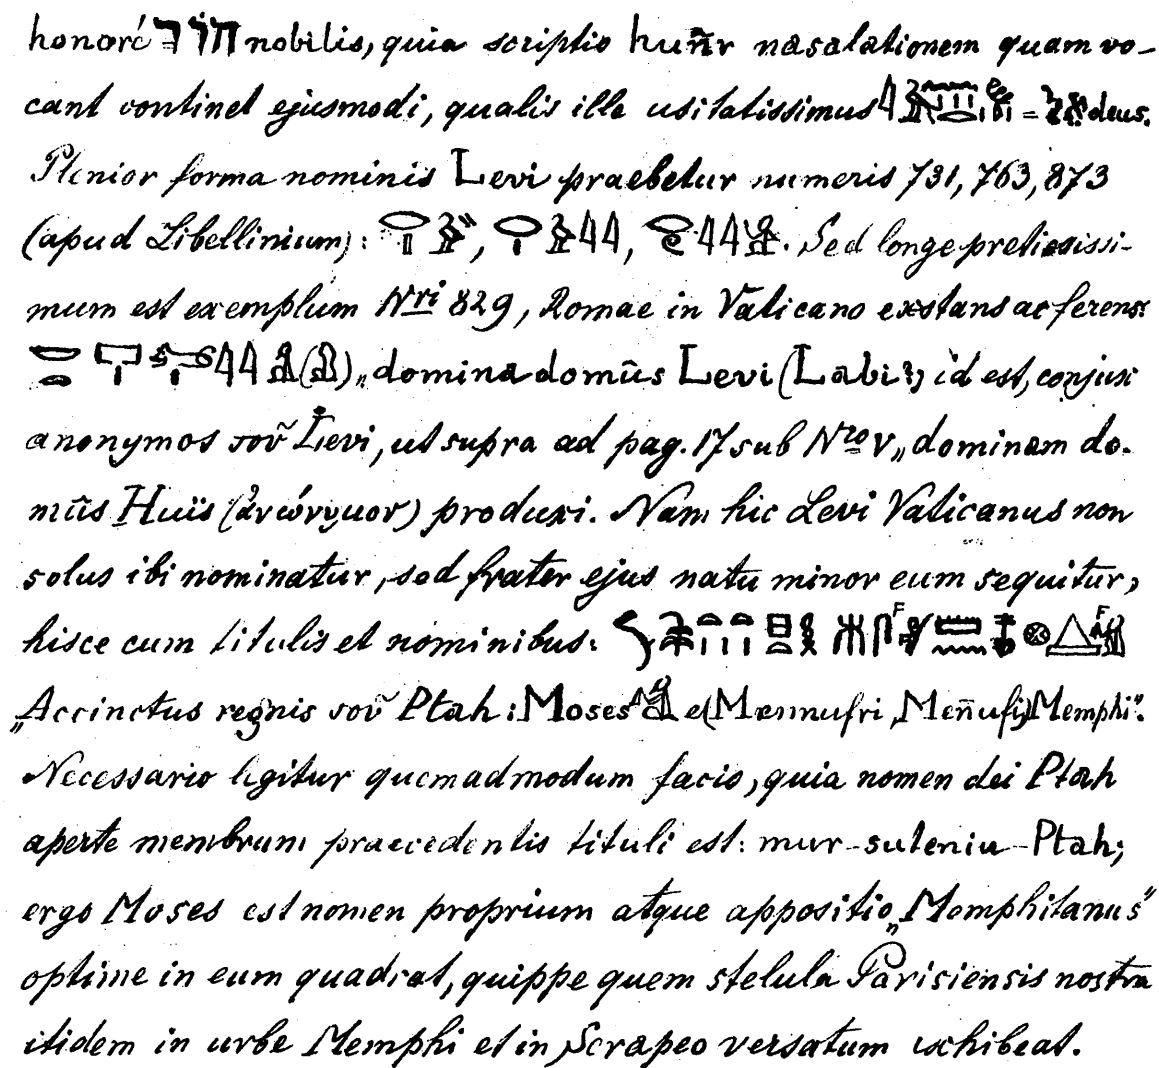 honoré חור nobilis, quia scriptio huñr nasalationem quam vo-
cant continet ejusmodi, qualis ille usitatissimus = deus.
Plenior forma nominis Levi praebetur numeris 731, 763, 873
(apud Libellinium): , , . Sed longe pretiosissi-
mum est exemplum Nri 829, Romae in Vaticano exstans ac ferens:
„domina domûs Levi (Labi?) id est, conjux
anonymos τοῦ Levi, ut supra ad pag. 17 sub Nro V „dominam do-
mûs Huïs (ἀνώνυμον) produxi. Nam hic Levi Vaticanus non
solus ibi nominatur, sed frater ejus natu minor eum sequitur,
hisce cum titulis et nominibus:
„Accinctus regnis τοῦ Ptah: Moses e (Mennufri, Meñufi) Memphi".
Necessario legitur quemadmodum facio, quia nomen dei Ptah
aperte membrum praecedentis tituli est: mur-suteniu-Ptah;
ergo Moses est nomen proprium atque appositio „Memphitanus"
optime in eum quadrat, quippe quem stelula Parisiensis nostra
itidem in urbe Memphi et in Serapeo versatum exhibeat.